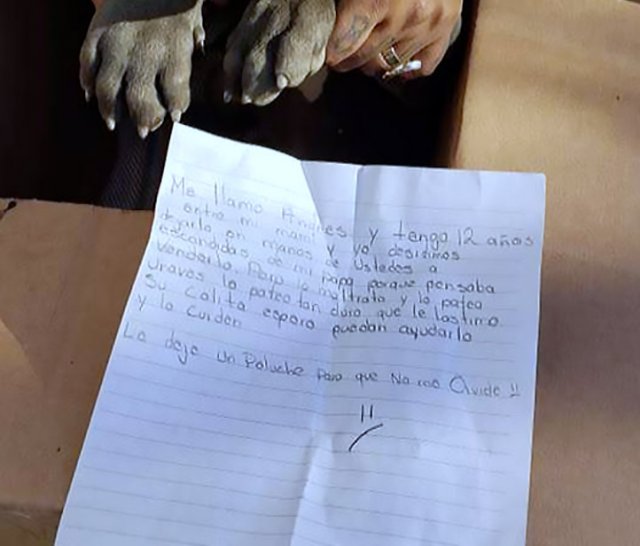 Me llamo Andres y tengo 12 años
entre mi mami y yo desisimos
dejarlo en manos de Ustedes a
escondidas de mi papa porque pensaba
Venderlo. Pero lo maltrata y lo patea
Uraves lo pateo tan duro que le lastimo
Su Colita espero puedan ayudarlo
y lo Cuiden
Le deje un Peluche Para que No me Olvide !!